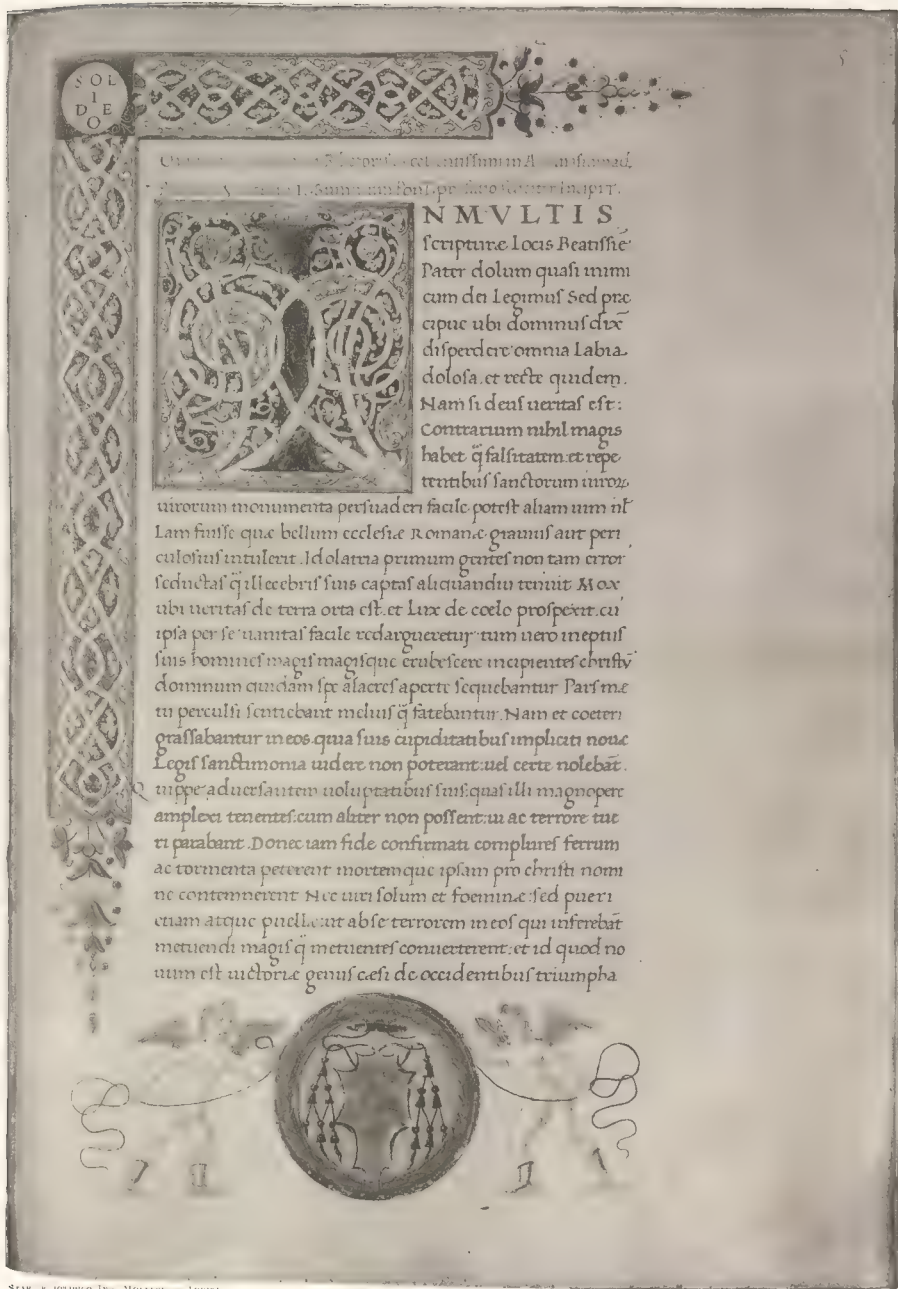 SOL
I
DE
O
5
incipit.
NMVLTIS
scripturæ Locis Beatissīe
Pater dolum quasi inimi
cum dei Legimus Sed præ
cipue ubi dominus dix̄
disperdere omnia Labia
dolosa. et recte quidem.
Nam si deus ueritas est:
Contrarium nihil magis
habet q̄ falsitatem: et repe
tentibus sanctorum uiroꝝ
uirorum monumenta persuaderi facile potest aliam uim nl̄
Lam fuisse quæ bellum ecclesiæ Romanæ grauius aut peri
culosius intulerit. Idolatria primum gentes non tam error
seductas q̄ illecebris suis captas aliquandiu tenuit Mox
ubi ueritas de terra orta est. et Lux de coelo prospexit. cū
ipsa per se uanitas facile redargueretur tum uero ineptiis
suis homines magis magisque erubescere incipientes christū
dominum quidam spe alacres aperte sequebantur Pars me
tu perculsi sentiebant melius q̄ fatebantur. Nam et coeteri
grassabantur in eos. quia suis cupiditatibus impliciti nouæ
Legis sanctimonia uidere non poterant: uel certe nolebāt.
uippe aduersantem uoluptatibus suis: quas illi magnopere
amplexi tenentes: cum aliter non possent: ui ac terrore tue
ri parabant. Donec iam fide confirmati complures ferrum
ac tormenta peterent mortemque ipsam pro christi nomi
ne contemnerent Nec uiri solum et foeminæ: sed pueri
etiam atque puellæ: ut abse terrorem in eos qui inferebāt
metuendi magis q̄ metuentes conuerterent: et id quod no
uum est uictoriæ genus cæsi de occidentibus triumpha